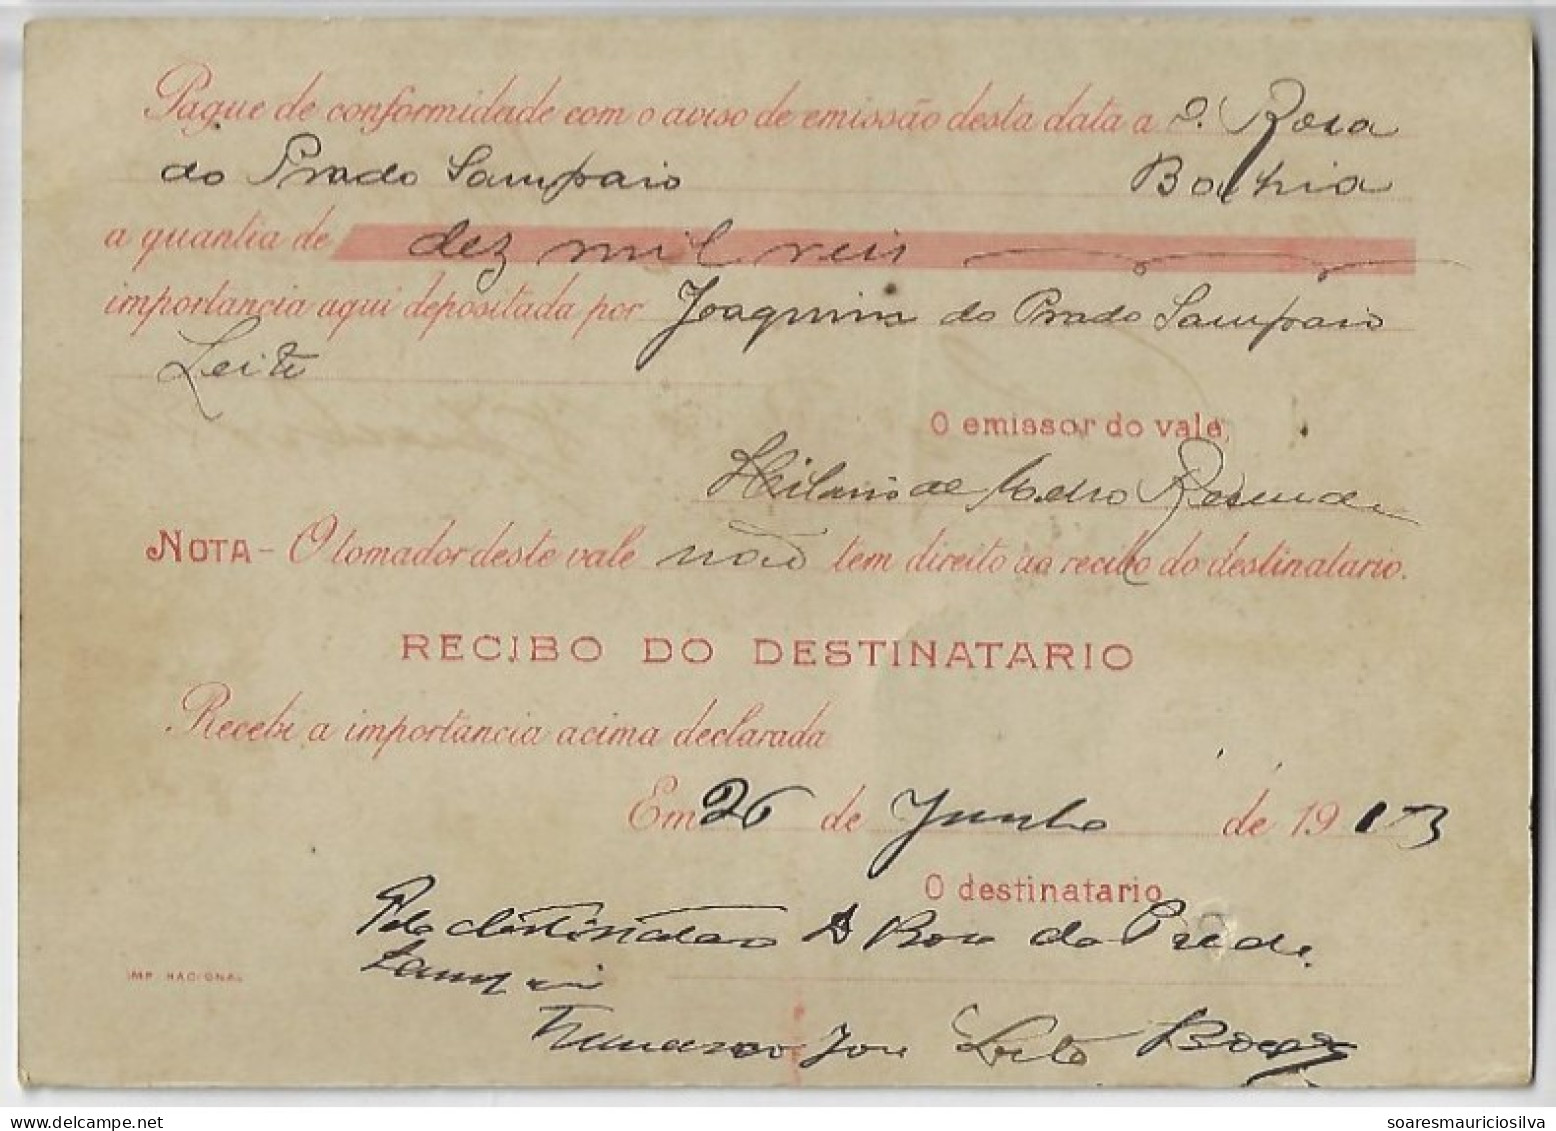 Pague de conformidade com o aviso de emissão desta data a D. Rosa
do Prado Sampaio Bahia
a quantia de dez mil reis
importancia aqui depositada por Joaquim do Prado Sampaio
Leite
O emissor do vale,
Hilario de
NOTA - O tomador deste vale não tem direito ao recibo do destinatario.
RECIBO DO DESTINATARIO
Recebi a importancia acima declarada
Em 26 de Junho de 1913
O destinatario
Pelo destinatario D Rosa do Prado
IMP. NACIONAL
Francisco José Leite
soaresmauriciosilva